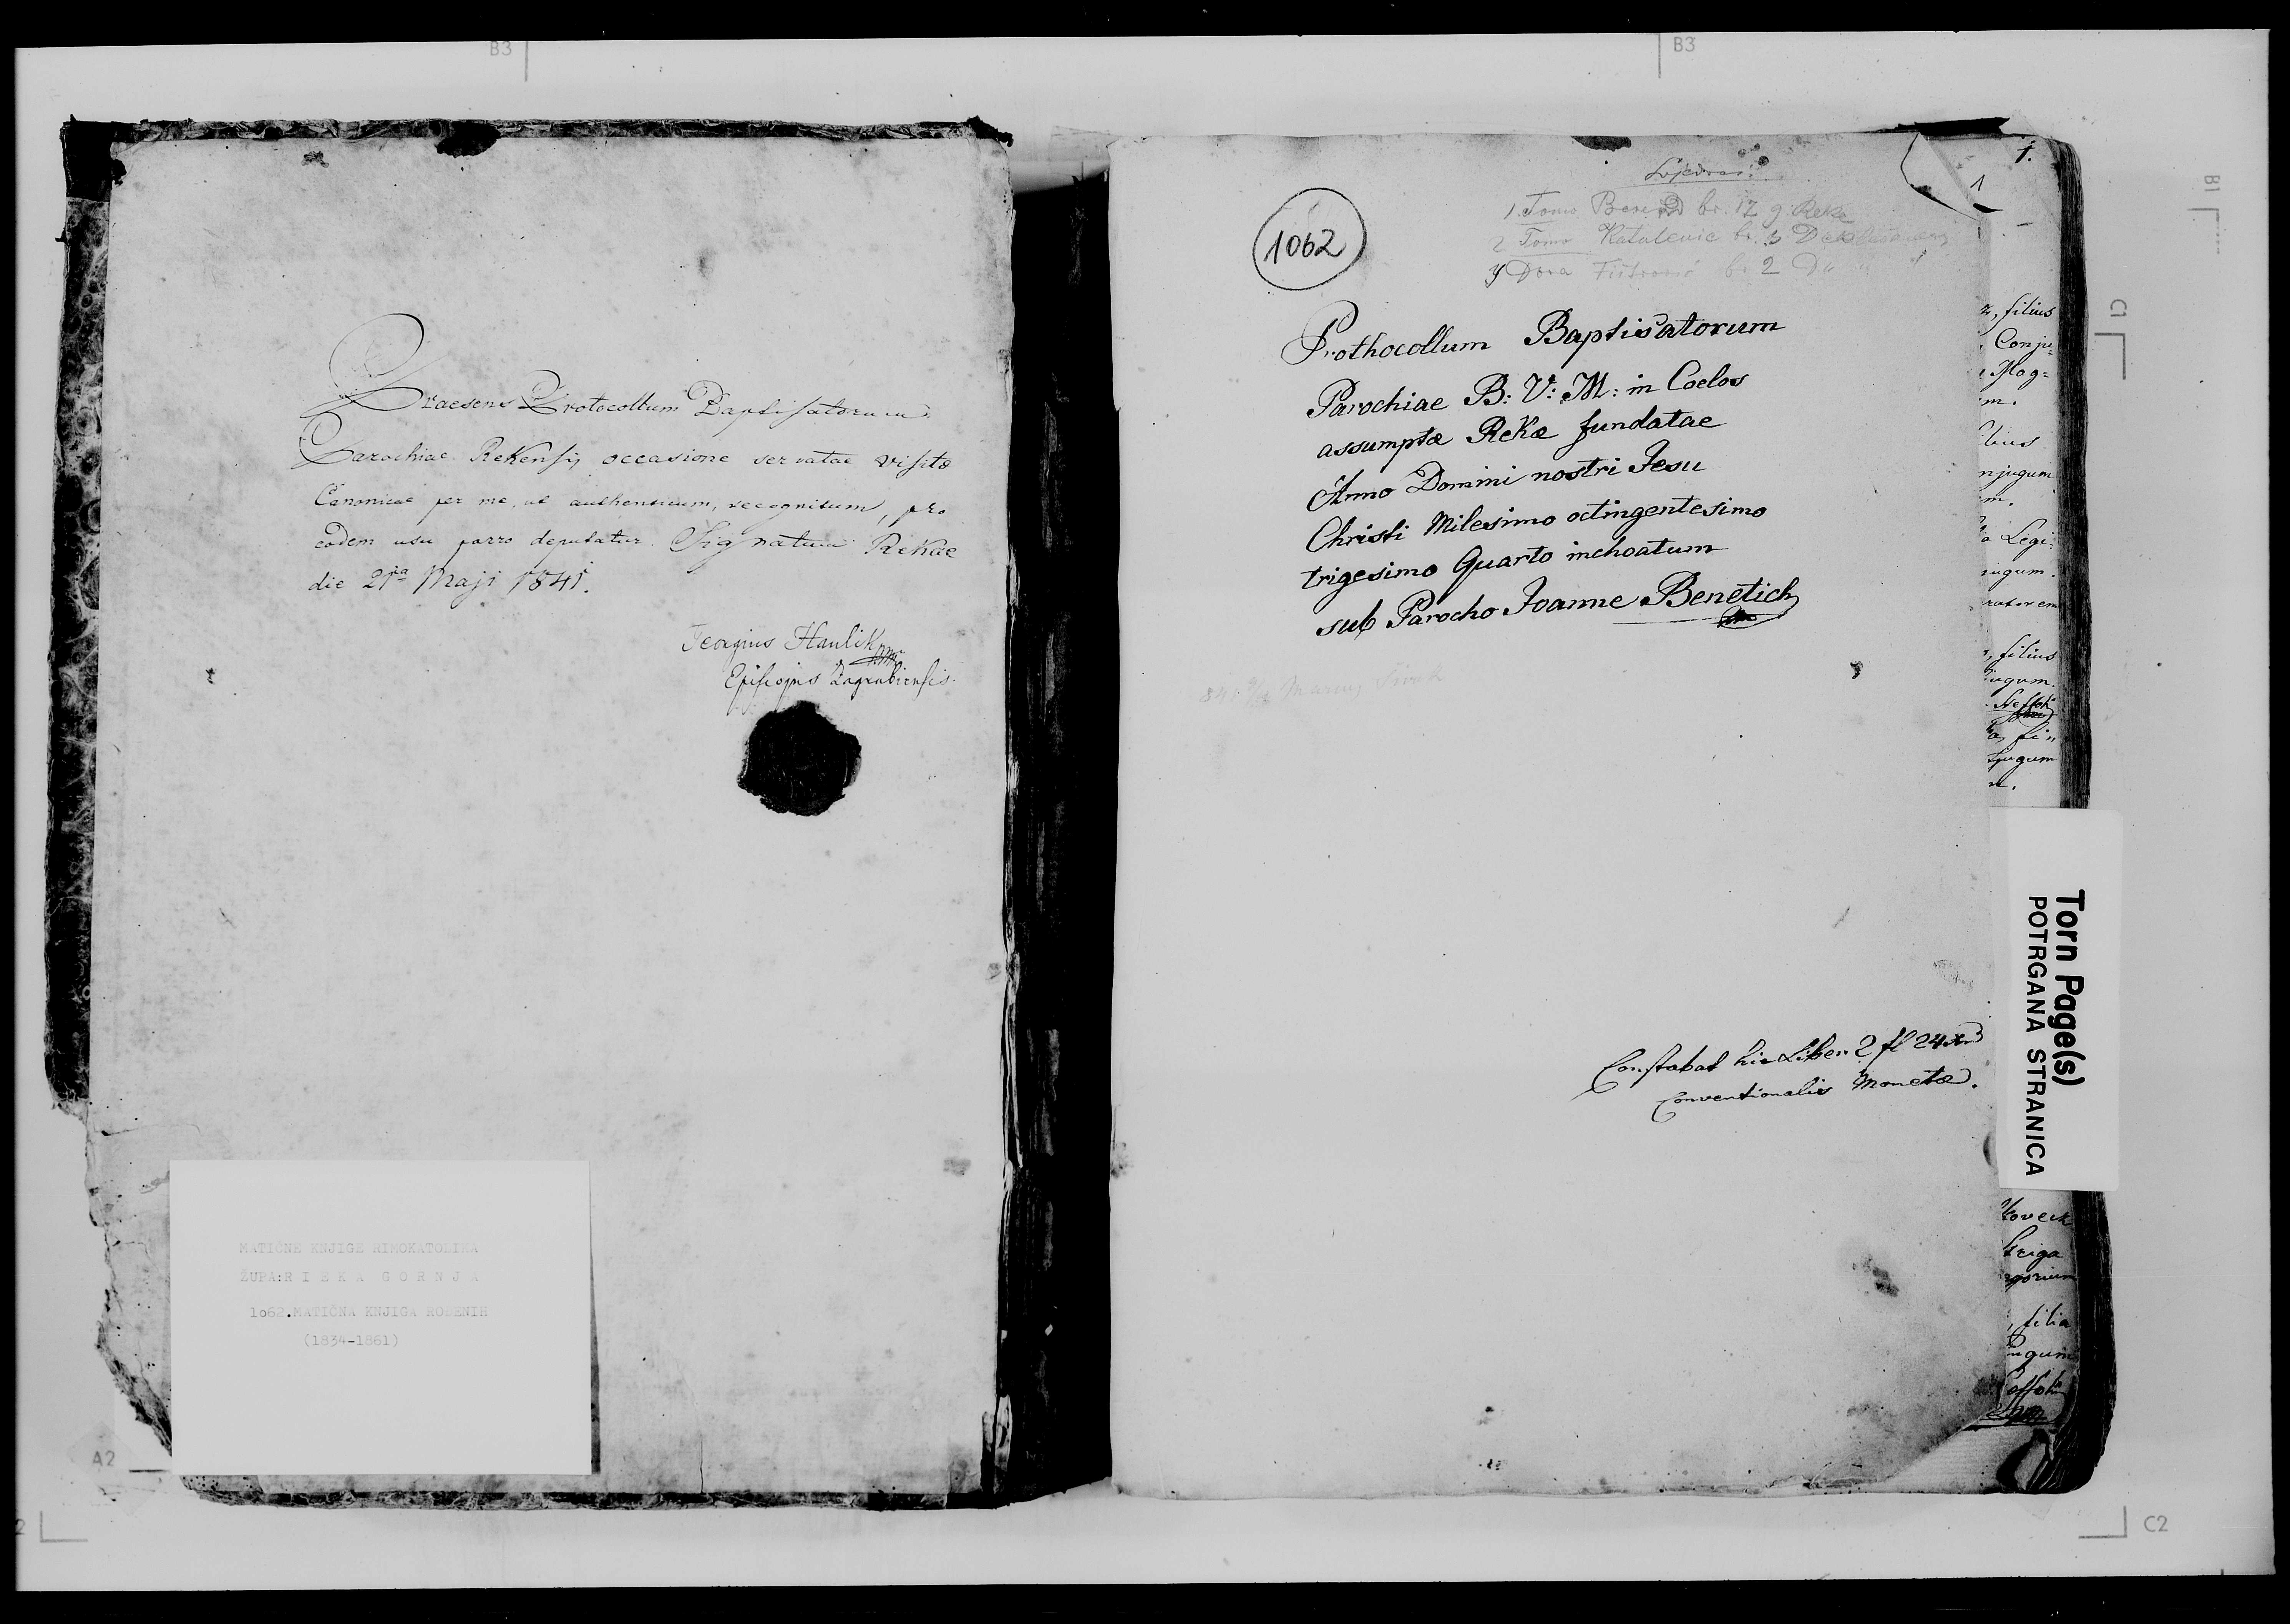 B3
B3
B1
C1
Praesens Protocollum Baptisatorum
Parochiae Rekensis occasione servatae visitae
Canonicae per me, ut authenticum, recognitum, pro
eodem usu porro deputatur. Signatum Rekae
die 21ma Maji 1841.
Georgius Haulik mpr
Episcopus Zagrabiensis.
MATIČNE KNJIGE RIMOKATOLIKA
ŽUPA:R I E K A G O R N J A
1o62.MATIČNA KNJIGA ROĐENIH
(1834-1861)
A2
1062
1. Tomo br. 17 g. Reke
2 Tomo Katalenic br. 3
3 Dora br 2
Prothocollum Baptisatorum
Parochiae B: V: M: in Coelos
assumptæ Rekæ fundatae
Anno Domini nostri Jesu
Christi Milesimo octingentesimo
trigesimo Quarto inchoatum
sub Parocho Joanne Benetich
Constabat hic Liber 2 fl 24
Conventionalis Monetæ.
1
1.
, filius
Conju=
Mag=
m.
lius
njugum
m.
Legi=
iugum.
ratorem
, filius
iugum.
fi"
jugum
Torn Page(s)
POTRGANA STRANICA
koveck
, filia
ugum
C2
2